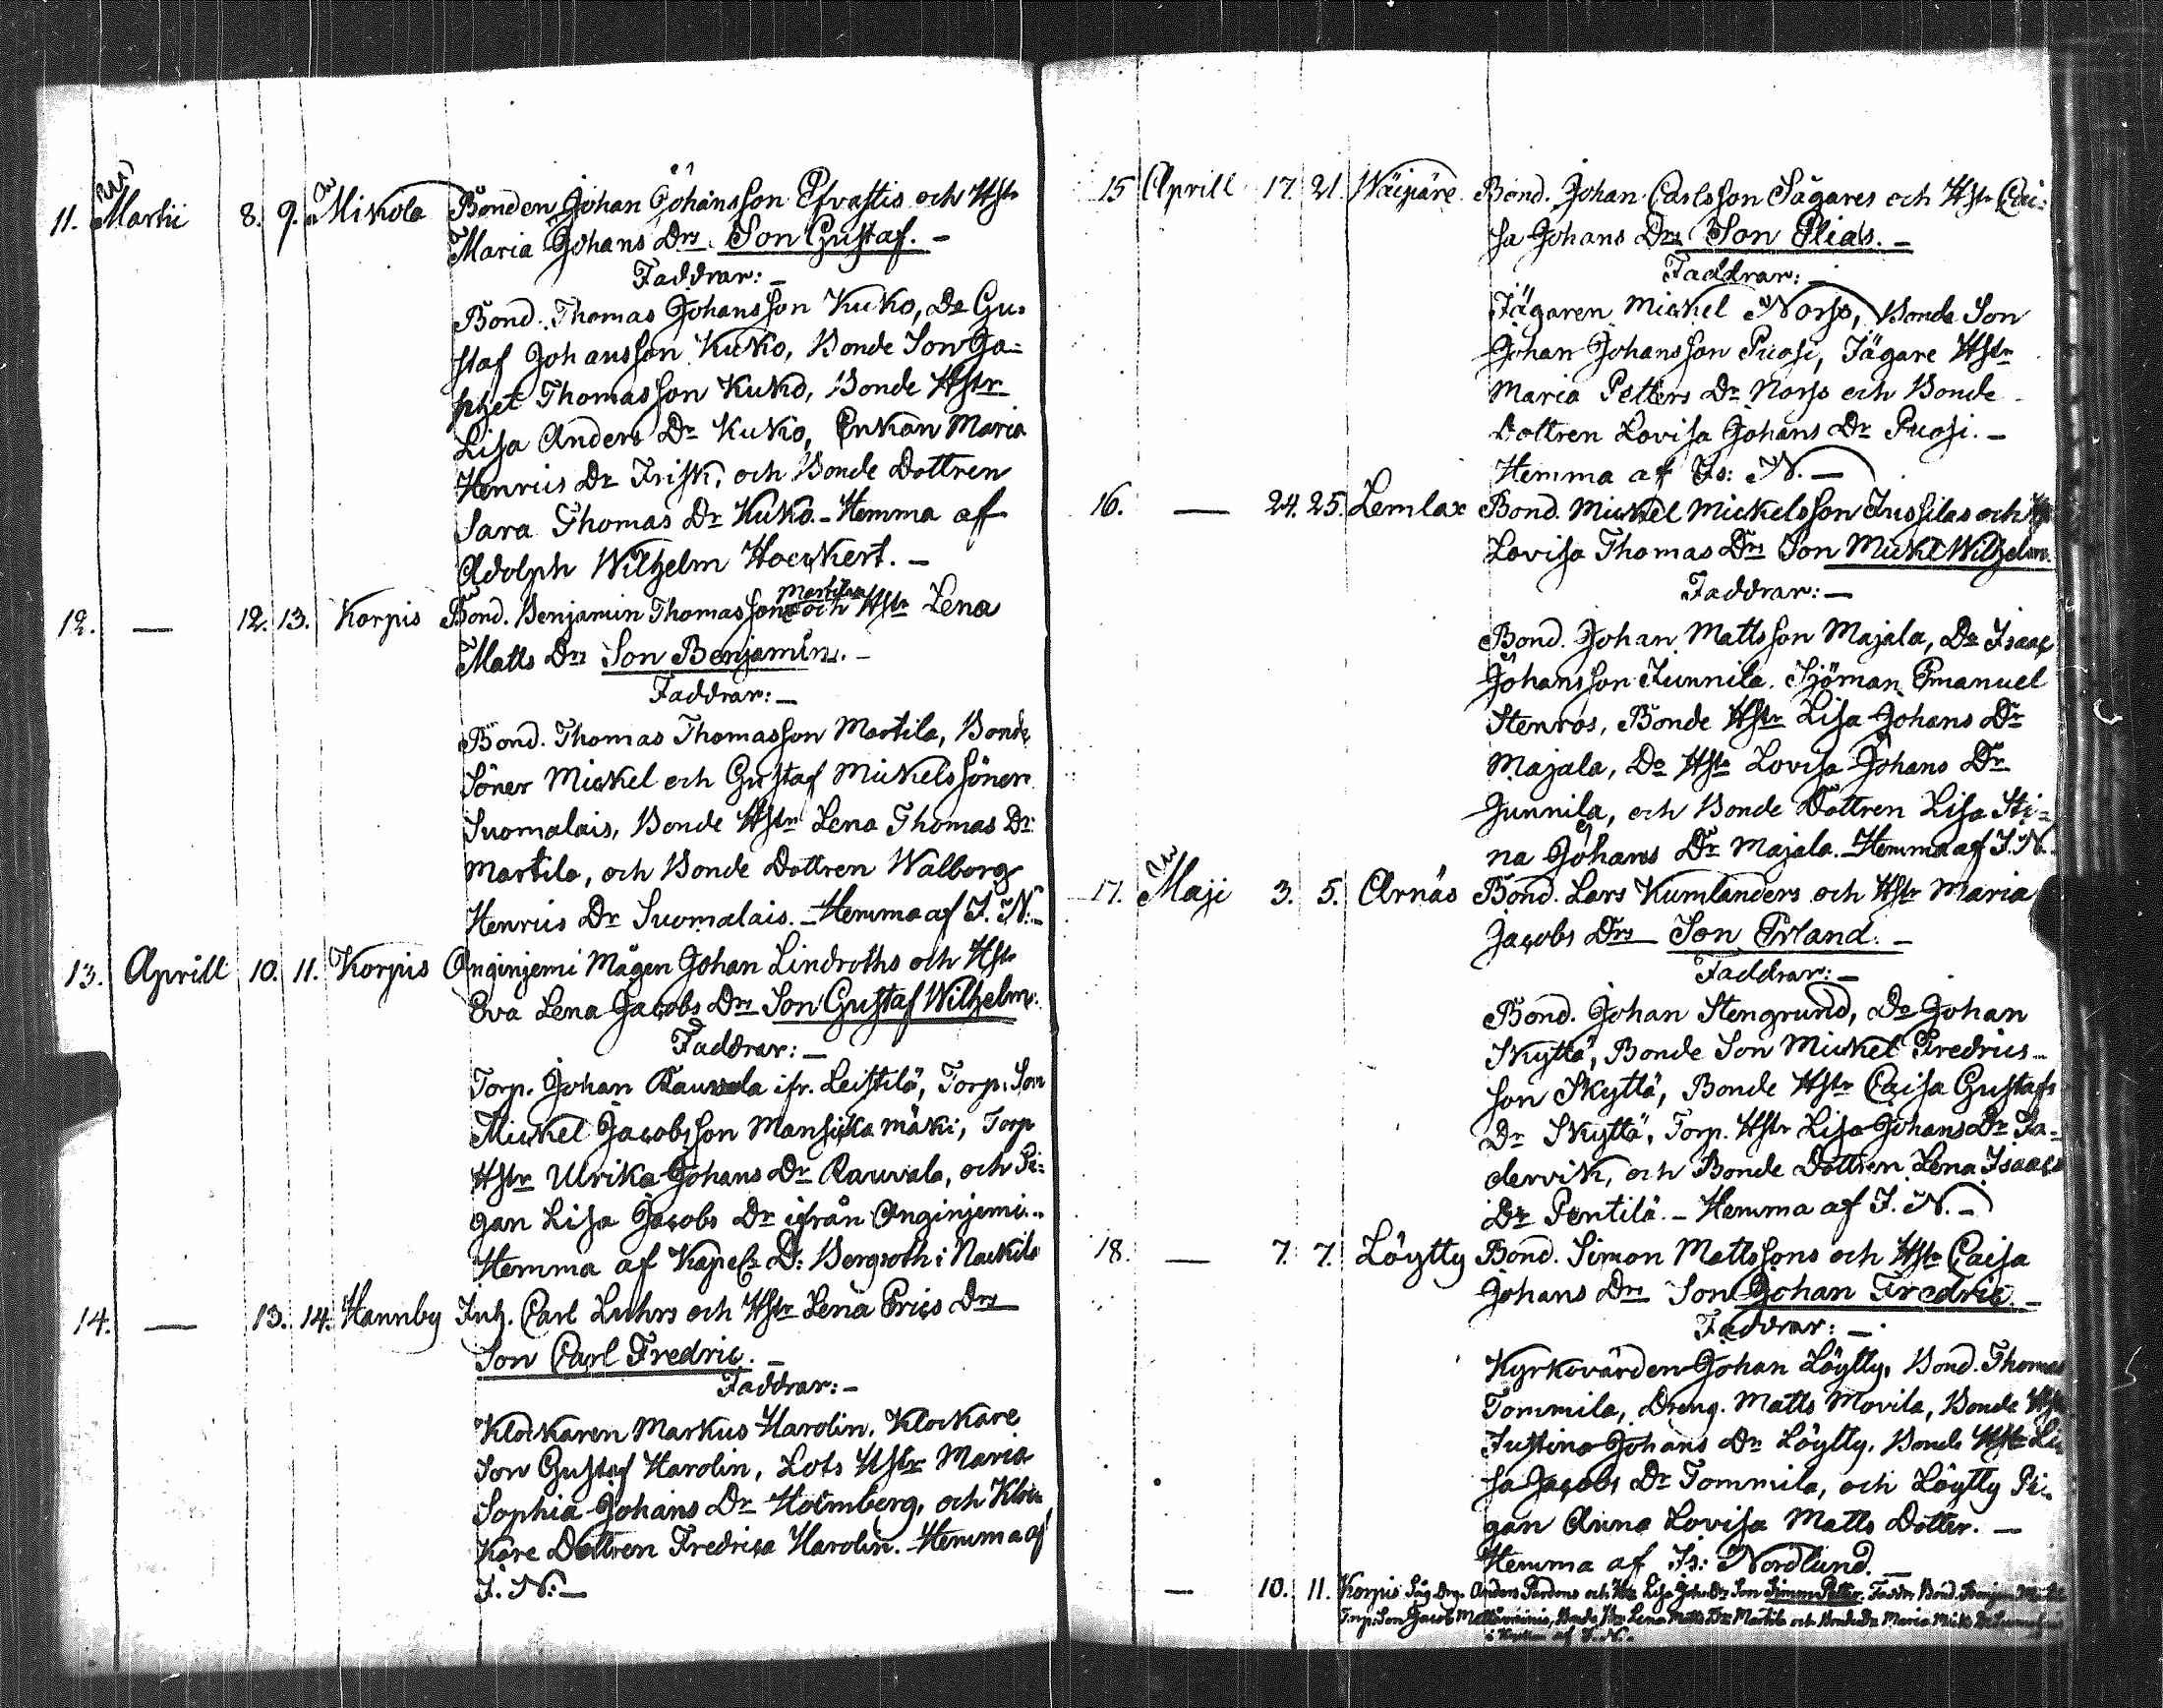 11. Martii 8. 9. Mikola Bonden Johan Johansson Efrastis och Hstr
Maria Johans Drs Son Gustaf. —
Faddrar: —
Bond. Thomas Johansson Kuko, Do Gu-
staf Johansson Kuko, Bonde Son Jo-
sphet Thomasson Kuko, Bonde Hstr
Lisa Anders Dr Kuko, Enkan Maria
Henrics Dr Frisk, och Bonde Dottren
Sara Thomas Dr Kuko. - Hemma af
Adolph Wilhelm Hoeckert. —
12. — 12. 13. Korpis Bond. Benjamin Thomassons Martilas och Hstr Lena
Matts Drs Son Benjamin. —
Faddrar: —
Bond. Thomas Thomasson Martila, Bonde
Söner Mickel och Gustaf Mickelssöner
Suomalais, Bonde Hstr Lena Thomas Dr
Martila, och Bonde Dottren Walborg
Henrics Dr Suomalais. - Hemma af J. N: -
13. Aprill 10. 11. Korpis Anginjemi Mågen Johan Lindroths och Hstr
Eva Lena Jacobs Drs Son Gustaf Wilhelm.
Faddrar: —
Torp. Johan Rauvala ifr. Leistilä, Torp. Son
Mickel Jacobsson Mansicka mäki, Torp
Hstr Ulrika Johans Dr Rauvala, och Pi-
gan Lisa Jacobs Dr ifrån Anginjemi. -
Hemma af Kapels D: Bergroth i Nackila
14. — 13. 14. Hannby Inh. Carl Luhrs och Hstr Lena Erics Drs
Son Carl Fredric. —
Faddrar: —
Klockaren Markus Harolin, Klockare
Son Gustaf Harolin, Lots Hstr Maria
Sophia Johans Dr Holmberg, och Kloc-
kare Dottren Fredrica Harolin. Hemma af
J. N: —
15 Aprill 17. 21. Wäipäre Bond. Johan Carlsson Sägares och Hstr Cai-
sa Johans Drs Son Elias. —
Faddrar: —
Jägaren Mickel Norss, Bonde Son
Johan Johansson Puosi, Jägare Hstr
Maria Petters Dr Norss och Bonde
Dottren Lovisa Johans Dr Puosi. —
Hemma af Is: N. —
16. — 24. 25. Lemlax Bond. Mickel Mickelsson Jussilas och
Lovisa Thomas Drs Son Mickl Wilhelm.
Faddrar: —
Bond. Johan Mattsson Majala, Do Isaac
Johansson Junnila. Sjöman Emanuel
Stenros, Bonde Hstr Lisa Johans Dr
Majala, Do Hstr Lovisa Johans Dr
Junnila, och Bonde Dottren Lisa Sti-
na Johans Dr Majala. Hemma af J. N.
17. Maji 3. 5. Arnäs Bond. Lars Kumlanders och Hstr Maria
Jacobs Drs Son Erland. —
Faddrar: —
Bond. Johan Stengrund, Do Johan
Skyttä, Bonde Son Mickel Fredrics-
son Skyttä, Bonde Hstr Caisa Gustafs
Dr Skyttä, Torp. Hstr Lisa Johans Dr Sa-
dervik, och Bonde Dottren Lena Isaacs
Dr Pentilä. - Hemma af J. N. -
18. — 7. 7. Löytty Bond. Simon Mattssons och Hstr Caisa
Johans Drs Son Johan Fredric. —
Faddrar: —
Kyrkovärden Johan Löytty, Bond. Thomas
Tommila, Dreng. Matts Movila, Bonde Hstr
Justina Johans Dr Löytty, Bonde Hstr Li-
sa Jacobs Dr Tommila, och Löytty Pi-
gan Anna Lovisa Matts Dotter. —
Hemma af Is: Nordlund. —
— 10. 11. Korpis Drg. Anders och Hstr Lisa Johs Drs Son Simon Petter. Faddr. Bond. Benjam
Torp. Son Jacob Bonde Hstr Lena Matts Dr Martila och Bonde Dr Maria Mick
af J. N.